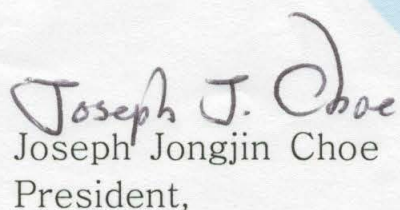 Joseph J. Choe
Joseph Jongjin Choe
President,